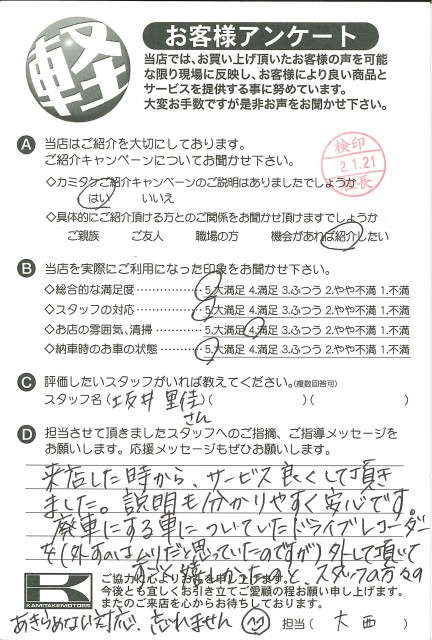 軽
お客様アンケート
当店では、お買い上げ頂いたお客様の声を可能
な限り現場に反映し、お客様により良い商品と
サービスを提供する事に努めています。
大変お手数ですが是非お声をお聞かせ下さい。
A 当店はご紹介を大切にしております。
ご紹介キャンペーンについてお聞かせ下さい。
検印
21.21
社長
◇カミタケご紹介キャンペーンのご説明はありましたでしょうか
はい いいえ
◇具体的にご紹介頂ける方とのご関係をお聞かせ頂けますでしょうか
ご親族 ご友人 職場の方 機会があれば紹介したい
B 当店を実際にご利用になった印象をお聞かせ下さい。
◇総合的な満足度 5.大満足 4.満足 3.ふつう 2.やや不満 1.不満
◇スタッフの対応 5.大満足 4.満足 3.ふつう 2.やや不満 1.不満
◇お店の雰囲気、清掃 5.大満足 4.満足 3.ふつう 2.やや不満 1.不満
◇納車時のお車の状態 5.大満足 4.満足 3.ふつう 2.やや不満 1.不満
C 評価したいスタッフがいれば教えてください。(複数回答可)
スタッフ名(坂井 里佳さん)( )( )
D 担当させて頂きましたスタッフへのご指摘、ご指導メッセージを
お願いします。応援メッセージもぜひお願いします。
来店した時から、サービス良くして頂き
ました。説明も分かりやすく安心です。
廃車にする車についていたドライブレコーダー
を(外すのはムリだと思っていたのですが)外して頂いて
すごく嬉しかったのと、スタッフの方々の
あきらめない対応、忘れません
K
KAMITAKE MOTORS
ご協力心よりお礼を申し上げます。
今後とも宜しくお引き立てご愛顧の程お願い申し上げます。
またのご来店を心からお待ちしております。
担当( 大西 )